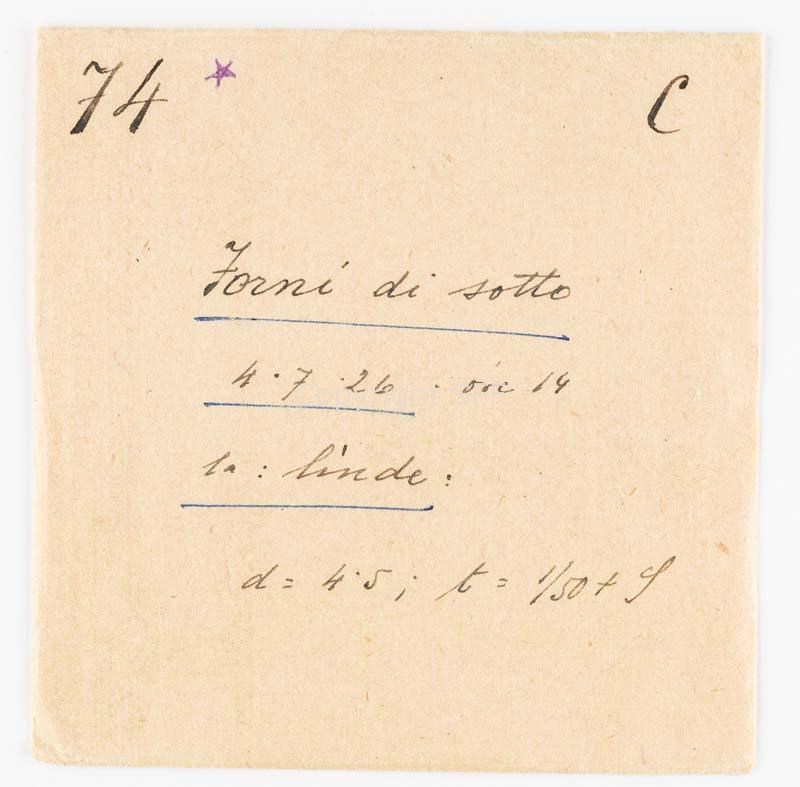 74 * C
Forni di sotto
4·7·26 · ore 14
la: linde:
d = 4·5; t = 1/50 + S